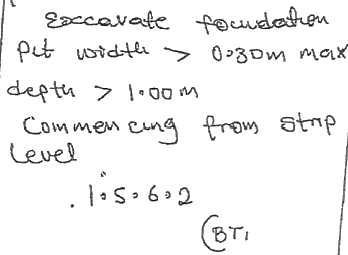 Exccavate foundation
Pit width > 0.30m max
depth > 1.00m
Commencing from strip
level
. 1.5.6.2
(BT1